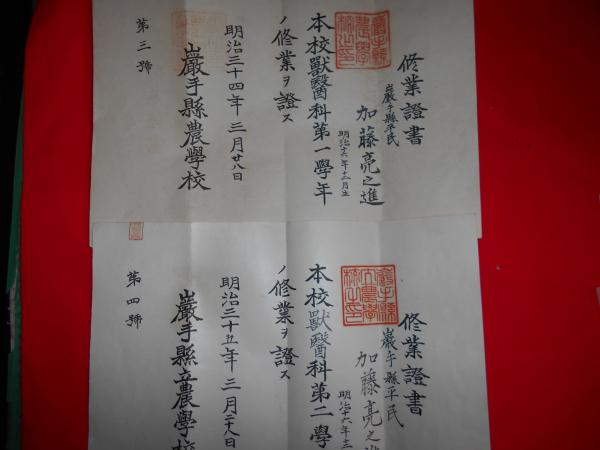 修業證書
巖手縣平民
加藤亮之進
明治十六年十二月生
本校獸醫科第一學年
ノ修業ヲ證ス
明治三十四年三月廿八日
巖手縣農學校
第三號
修業證書
巖手縣平民
加藤亮之進
明治十六年十二
本校獸醫科第二學
ノ修業ヲ證ス
明治三十五年三月二十八日
巖手縣立農學校
第四號